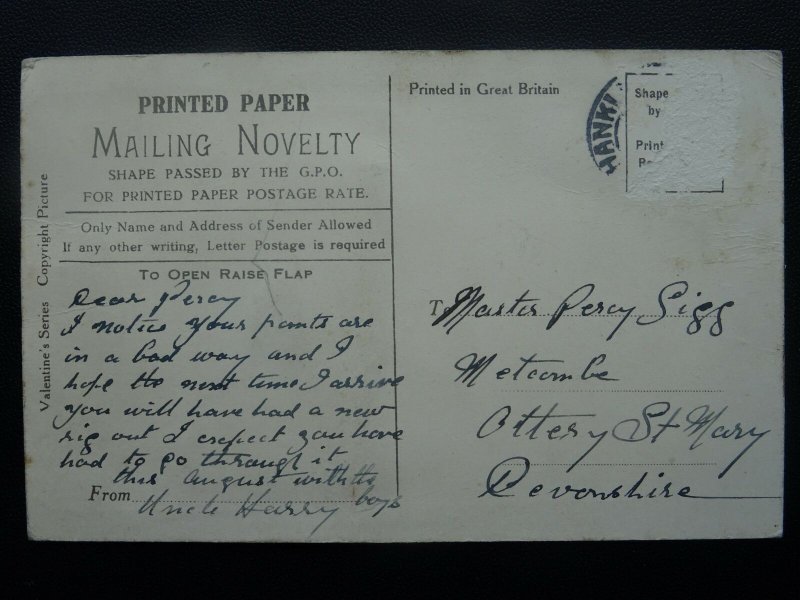 PRINTED PAPER
MAILING NOVELTY
SHAPE PASSED BY THE G.P.O.
FOR PRINTED PAPER POSTAGE RATE.
Only Name and Address of Sender Allowed
If any other writing, Letter Postage is required
TO OPEN RAISE FLAP
Dear Percy
I notice your pants are
in a bad way and I
hope the next time I arrive
you will have had a new
rig out I expect you have
had to go through it
this August with the
boys
From Uncle Harry
Valentine's Series Copyright Picture
Printed in Great Britain
HANKI
Shape
by
Print
To Master Percy Sigg
Metcombe
Ottery St Mary
Devonshire